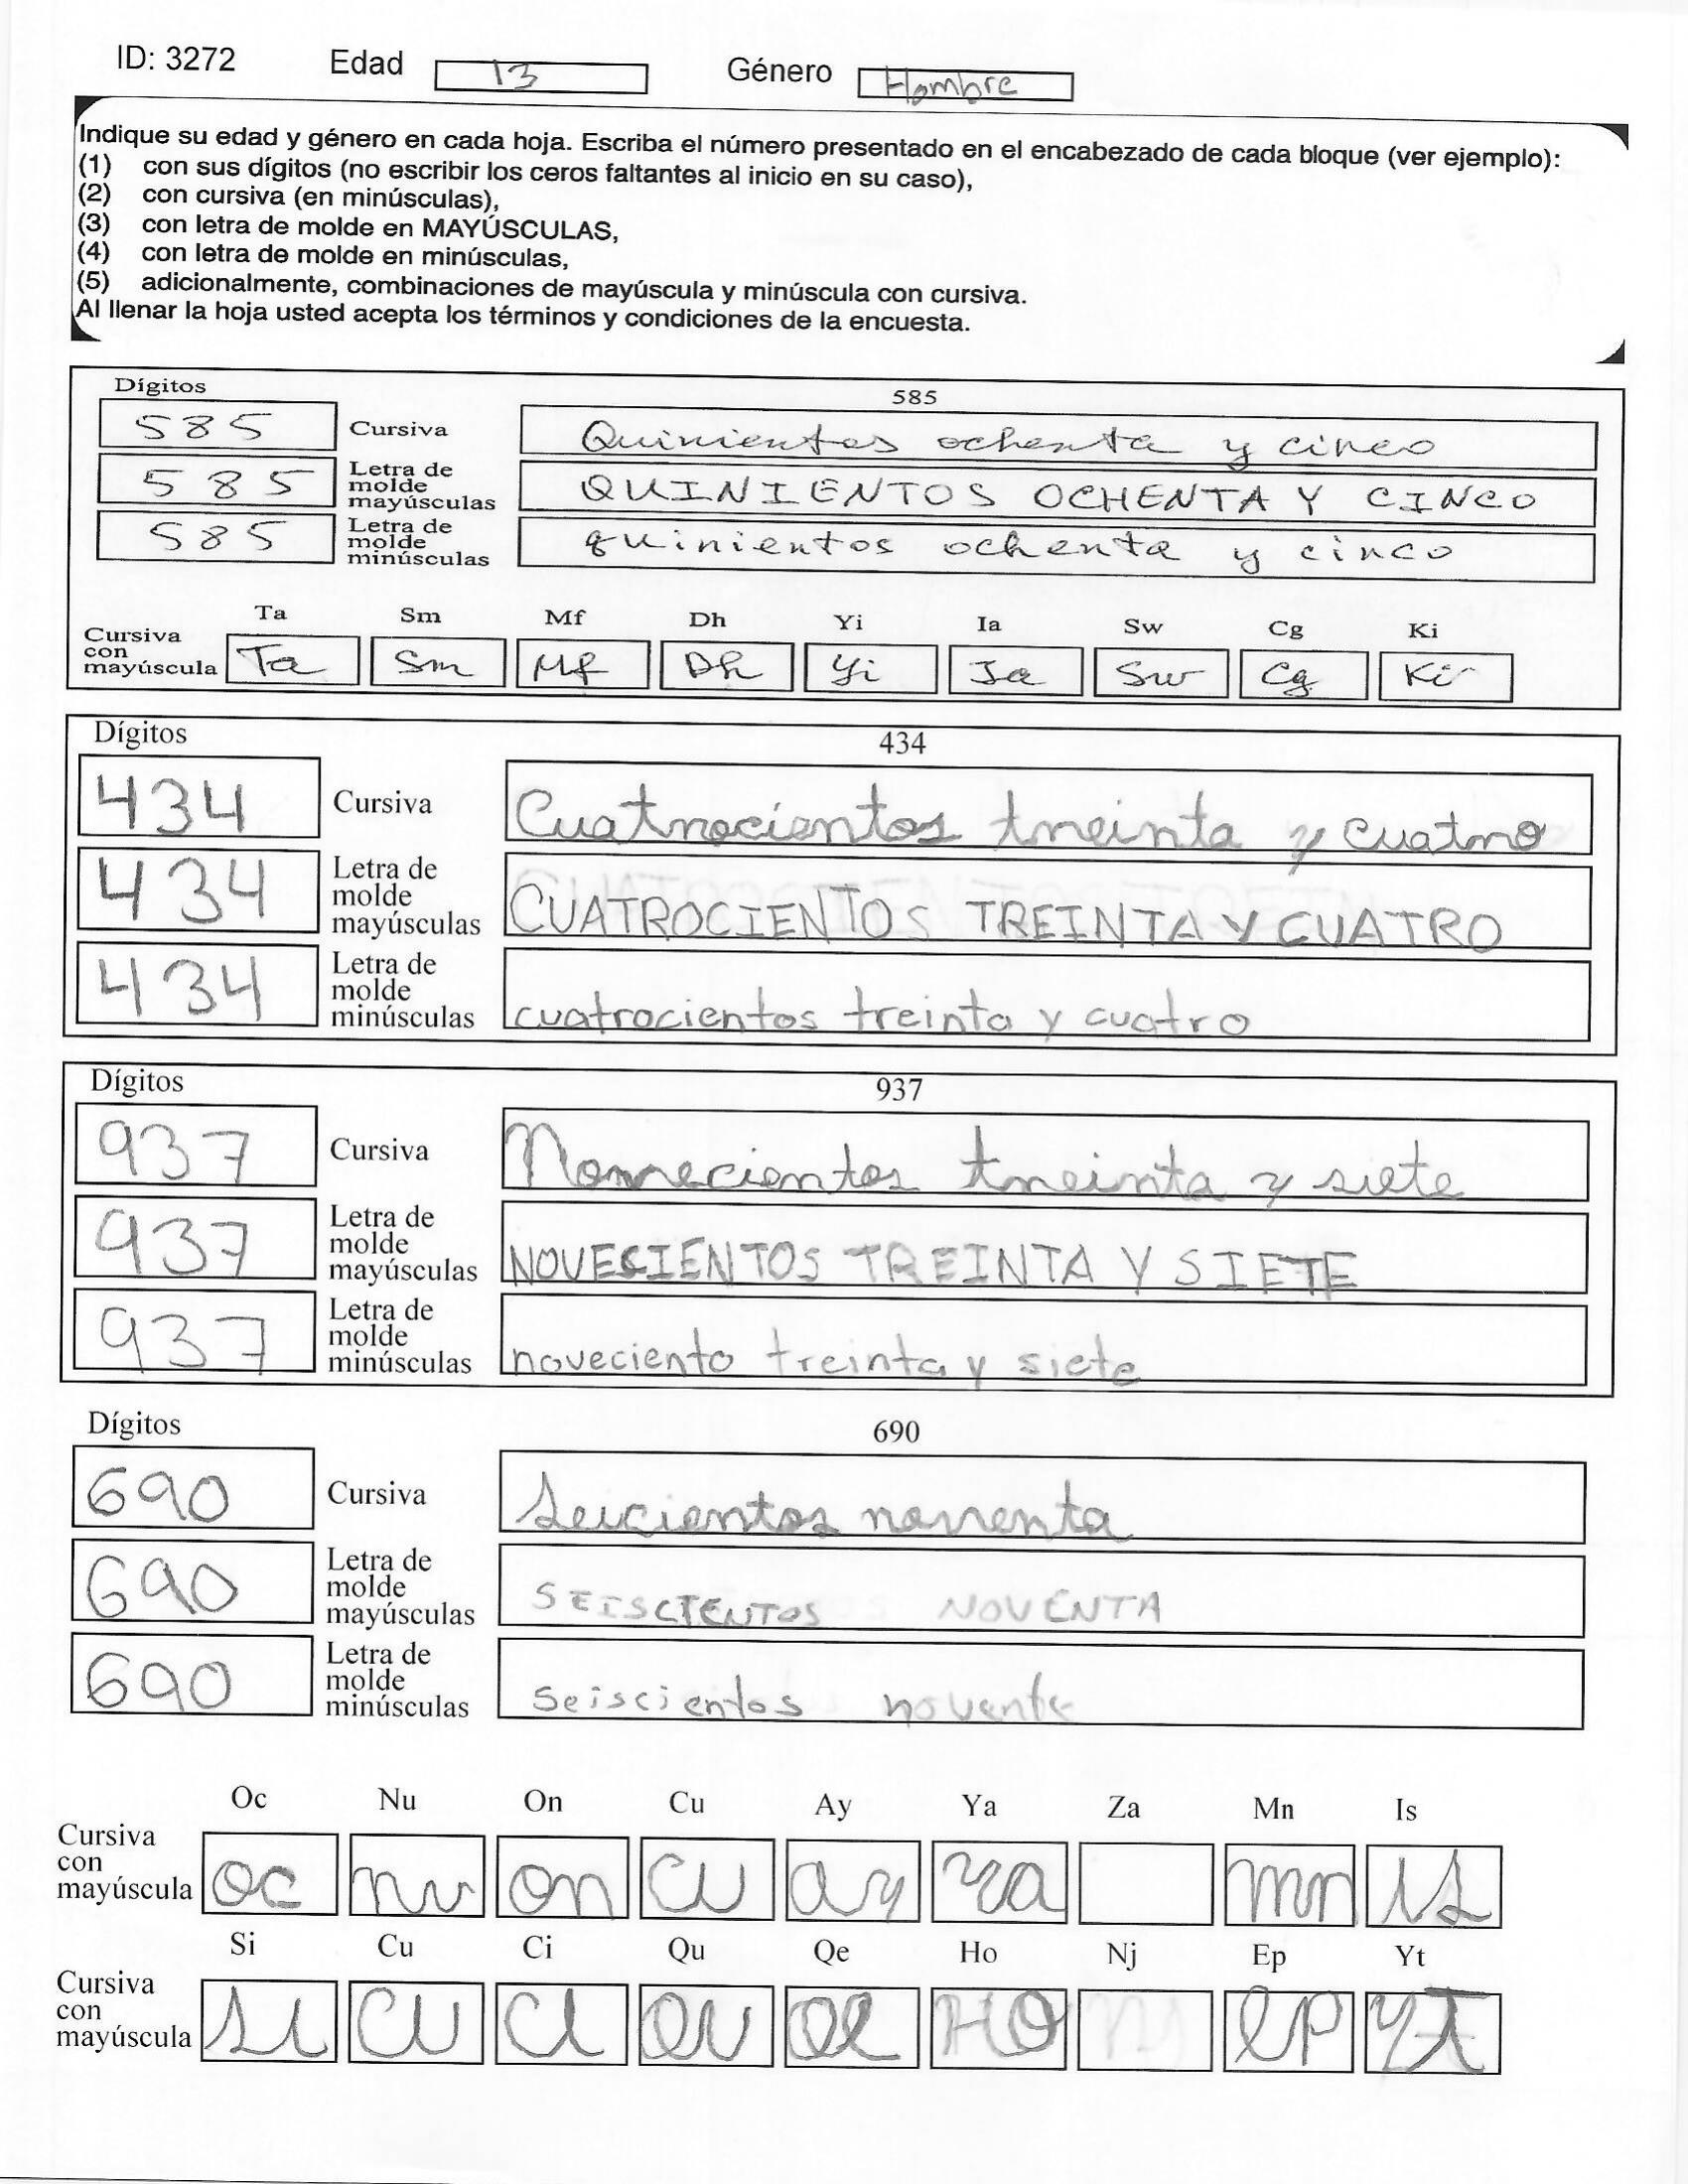 ID: 3272 Edad 13 Género Hombre
Indique su edad y género en cada hoja. Escriba el número presentado en el encabezado de cada bloque (ver ejemplo):
(1) con sus dígitos (no escribir los ceros faltantes al inicio en su caso),
(2) con cursiva (en minúsculas),
(3) con letra de molde en MAYÚSCULAS,
(4) con letra de molde en minúsculas,
(5) adicionalmente, combinaciones de mayúscula y minúscula con cursiva.
Al llenar la hoja usted acepta los términos y condiciones de la encuesta.
Dígitos 585
585 Cursiva Quinientos ochenta y cinco
585 Letra de molde mayúsculas QUINIENTOS OCHENTA Y CINCO
585 Letra de molde minúsculas quinientos ochenta y cinco
Ta Sm Mf Dh Yi Ia Sw Cg Ki
Cursiva con mayúscula Ta Sm Mf Dh Yi Ia Sw Cg Ki
Dígitos 434
434 Cursiva Cuatrocientos treinta y cuatro
434 Letra de molde mayúsculas CUATROCIENTOS TREINTA Y CUATRO
434 Letra de molde minúsculas cuatrocientos treinta y cuatro
Dígitos 937
937 Cursiva Novecientos treinta y siete
937 Letra de molde mayúsculas NOVECIENTOS TREINTA Y SIETE
937 Letra de molde minúsculas noveciento treinta y siete
Dígitos 690
690 Cursiva Seicientos noventa
690 Letra de molde mayúsculas SEISCIENTOS NOVENTA
690 Letra de molde minúsculas seiscientos noventa
Oc Nu On Cu Ay Ya Za Mn Is
Cursiva con mayúscula Oc nu on Cu ay Ya mn Is
Si Cu Ci Qu Qe Ho Nj Ep Yt
Cursiva con mayúscula Si Cu Ci Qu Qe Ho ep Yt